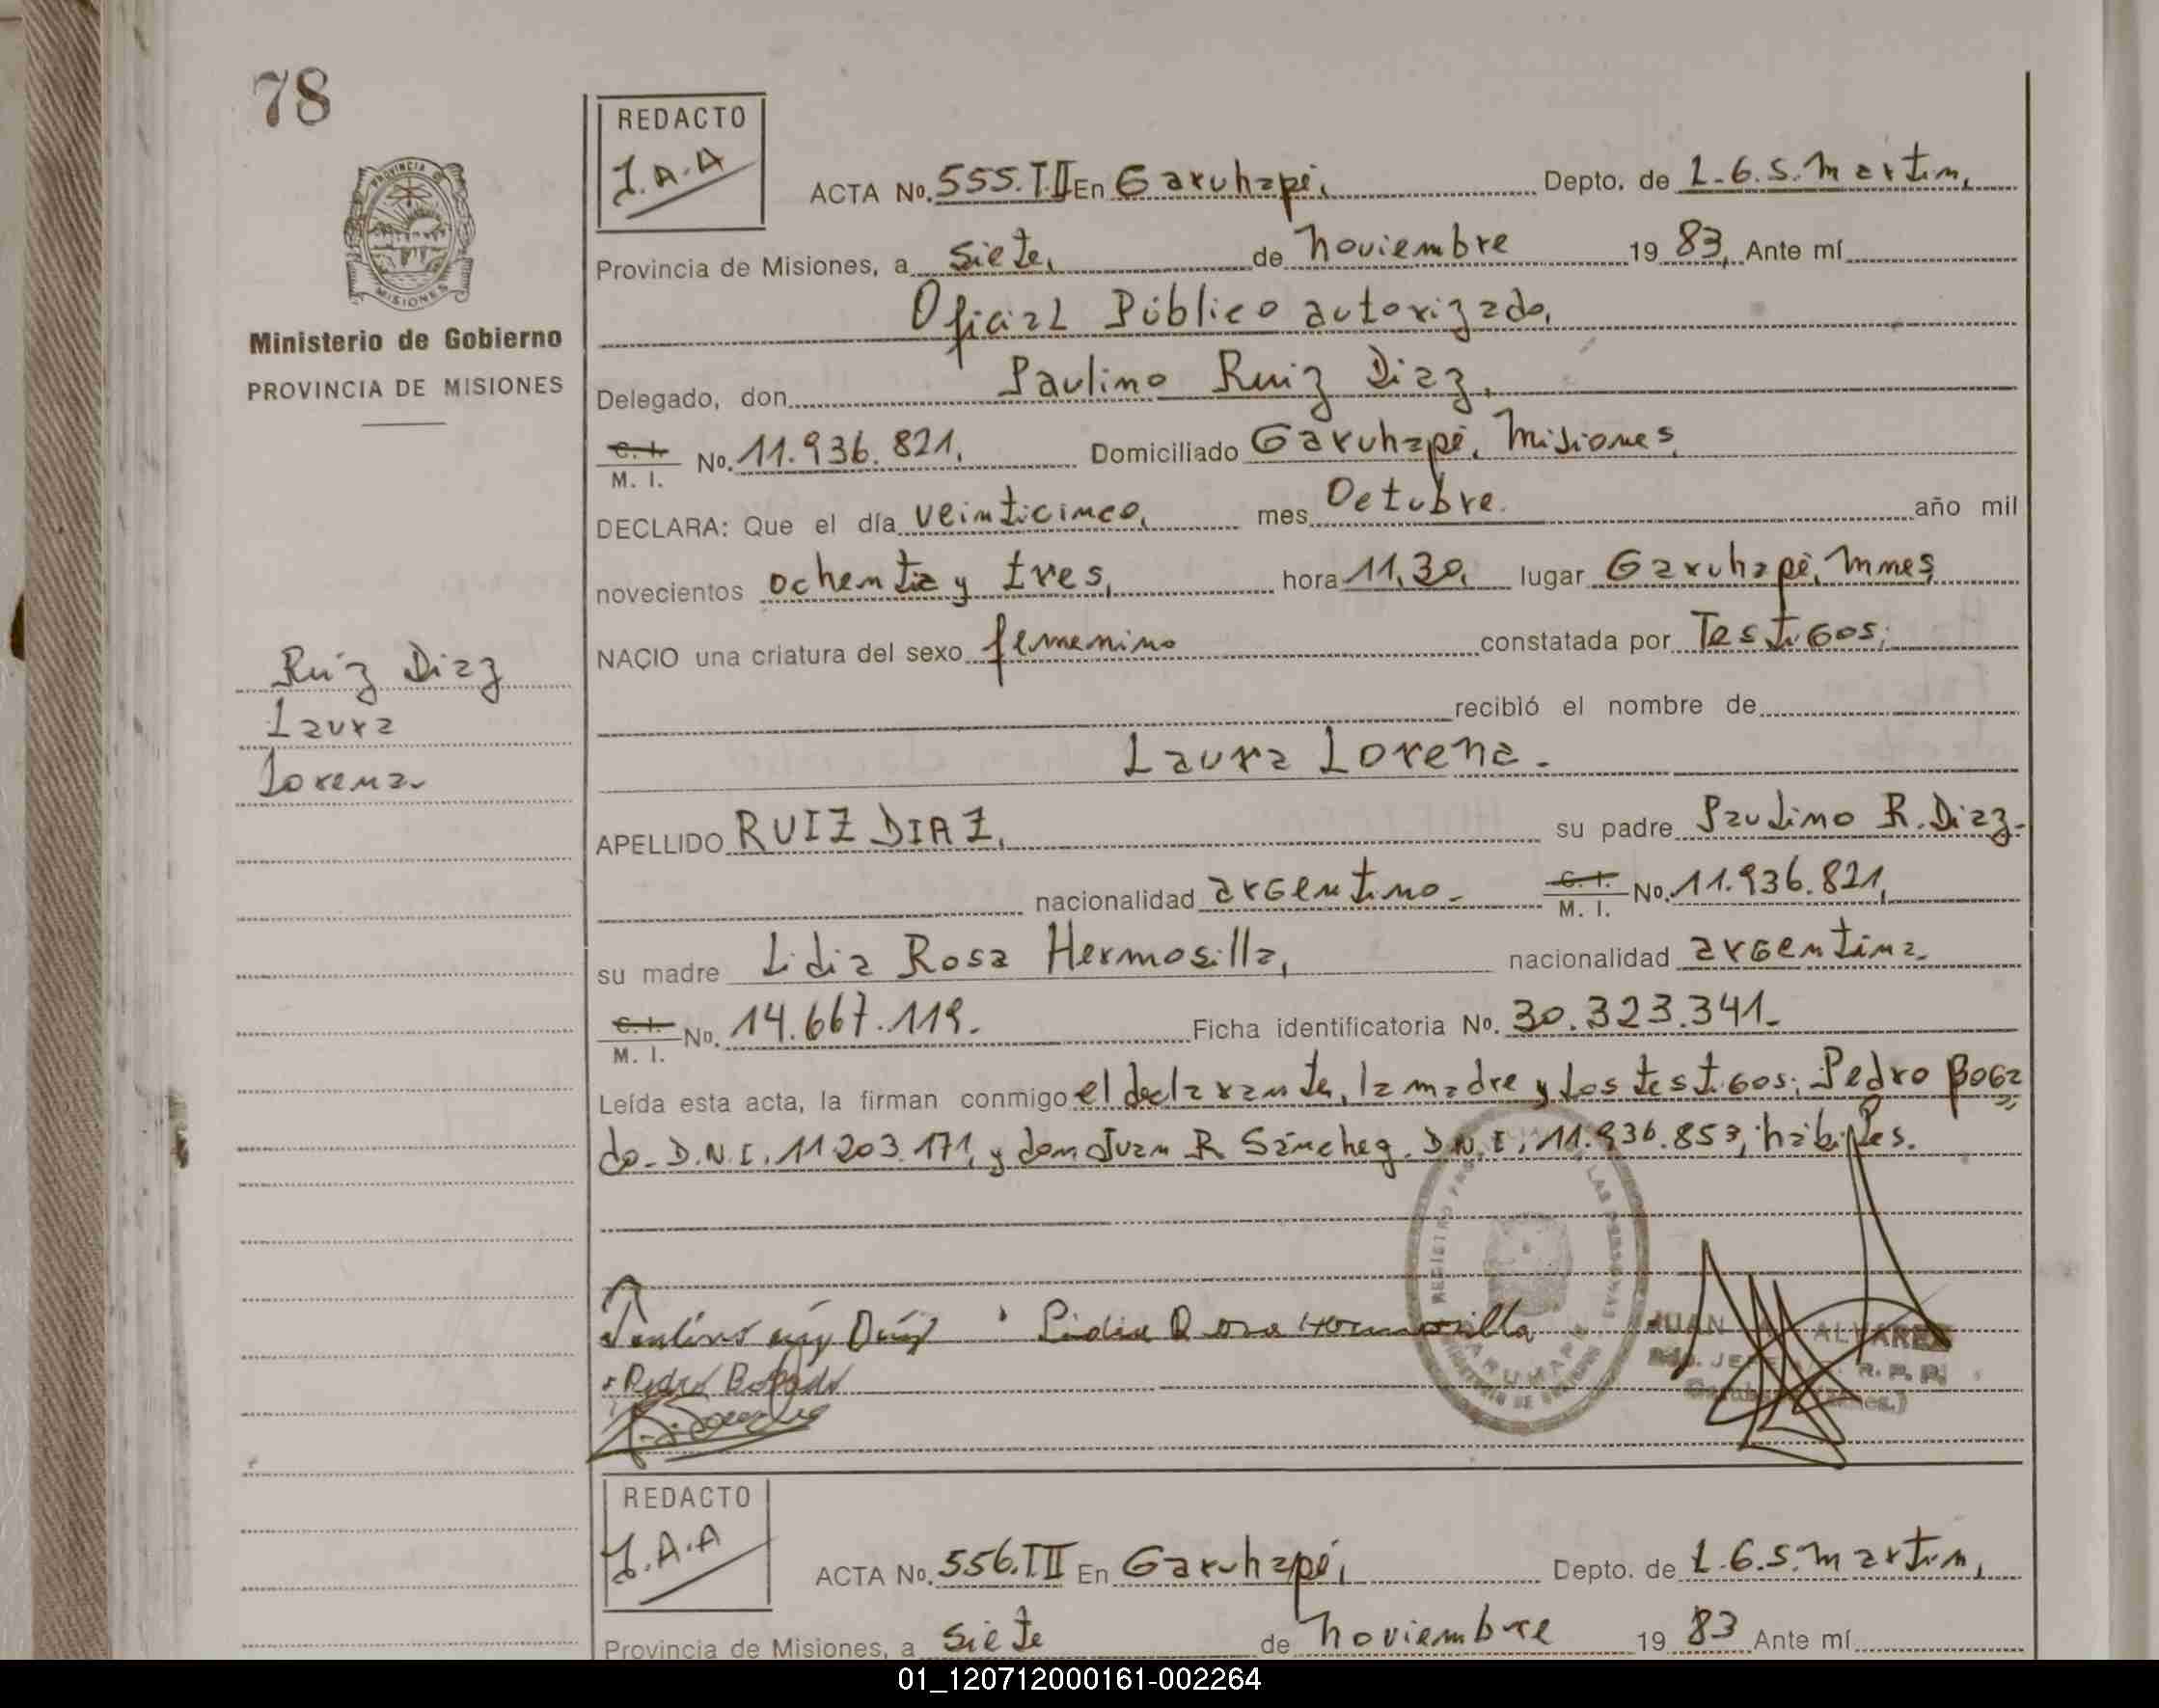 78
PROVINCIA DE
MISIONES
Ministerio de Gobierno
PROVINCIA DE MISIONES
Ruiz Diaz
Laura
Lorena.
REDACTO
J.A.A
ACTA No. 555.T.II En Garuhapé, Depto. de L.G.S.Martin,
Provincia de Misiones, a siete, de noviembre 19 83, Ante mí
Oficial Público autorizado,
Delegado, don Paulino Ruiz Diaz,
C. I. No. 11.936.821, Domiciliado Garuhapé, Misiones,
M. I.
DECLARA: Que el día veinticinco, mes Octubre. año mil
novecientos ochenta y tres, hora 11,30, lugar Garuhapé, Mnes,
NACIO una criatura del sexo femenino constatada por Testigos;
recibió el nombre de
Laura Lorena.
APELLIDO RUIZ DIAZ, su padre Paulino R. Diaz.
nacionalidad argentino. C. I. No. 11.936.821,
M. I.
su madre Lidia Rosa Hermosilla, nacionalidad argentina.
C. I. No. 14.667.119. Ficha identificatoria No. 30.323.341.
M. I.
Leída esta acta, la firman conmigo el declarante, la madre y los testigos; Pedro Boga
do. D.N.I. 11.203.171, y don Juan R Sánchez. D.N.I. 11.936.853, hábiles.
REGISTRO LAS PERSONAS
Lidia Rosa Hermosilla
JUAN ALVAREZ
R. P. P.
Pedro Bogado
REDACTO
J.A.A
ACTA No. 556.T.II En Garuhapé, Depto. de L.G.S.Martin,
Provincia de Misiones, a siete de noviembre 19 83 Ante mí
01_120712000161-002264